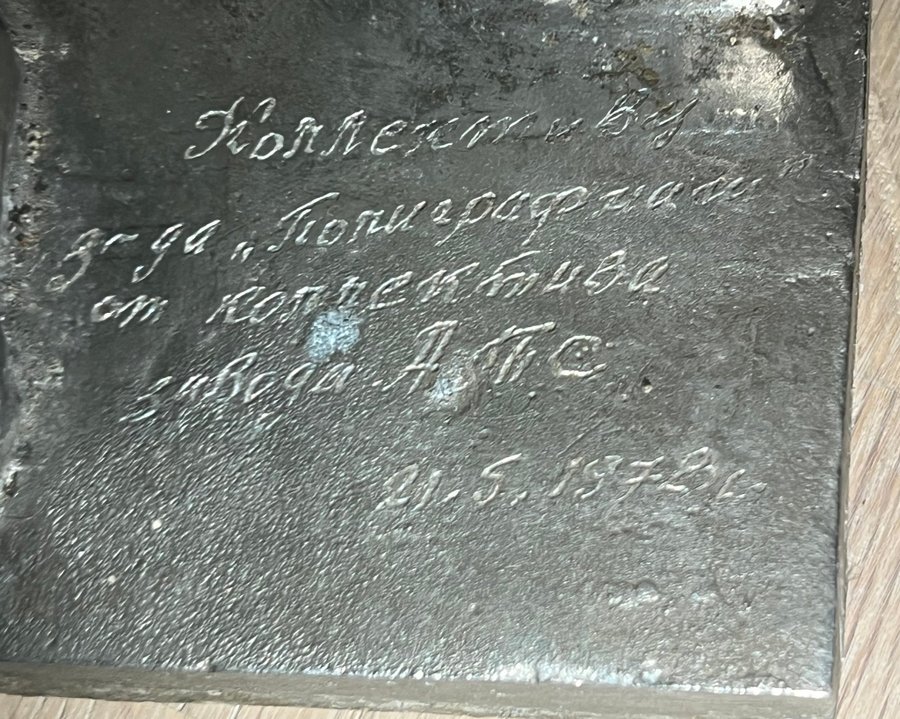 Коллективу
з-да „Полиграфмаш"
от коллектива
завода АТС
21.5.1972г.